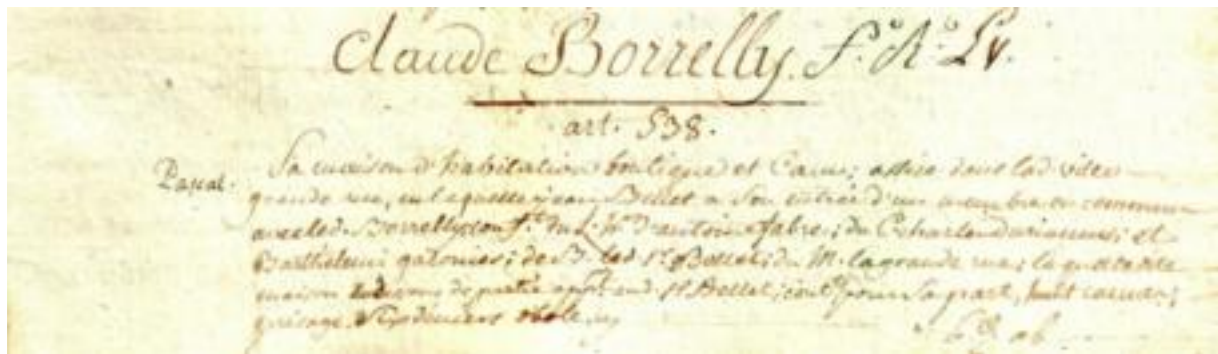 Claude Borrelly. f.° R.° Lv.
art. 538.
Pascal.
Sa maison d'habitation boutique et Cave; assise dans lad. ville
grande rue, en laquelle jean Bellet a Son entrée d'un membre en commun
avec led. Borrelly; conf.te du L. h.rs d'antoine fabre; du C. charles et
Barthelemi; de B. led. Sr. Bellet; du M. la grande rue; la
maison de partie app.t aud. Sr. Bellet; cont.t pour Sa part, huit cannes;
Six deniers obole
6 d. ob.